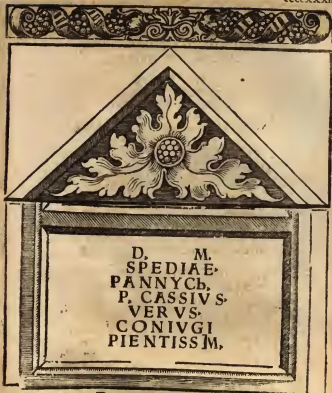 D. M.
SPEDIAE.
PANNYCb.
P. CASSIVS.
VERVS.
CONIVGI
PIENTISSIM,